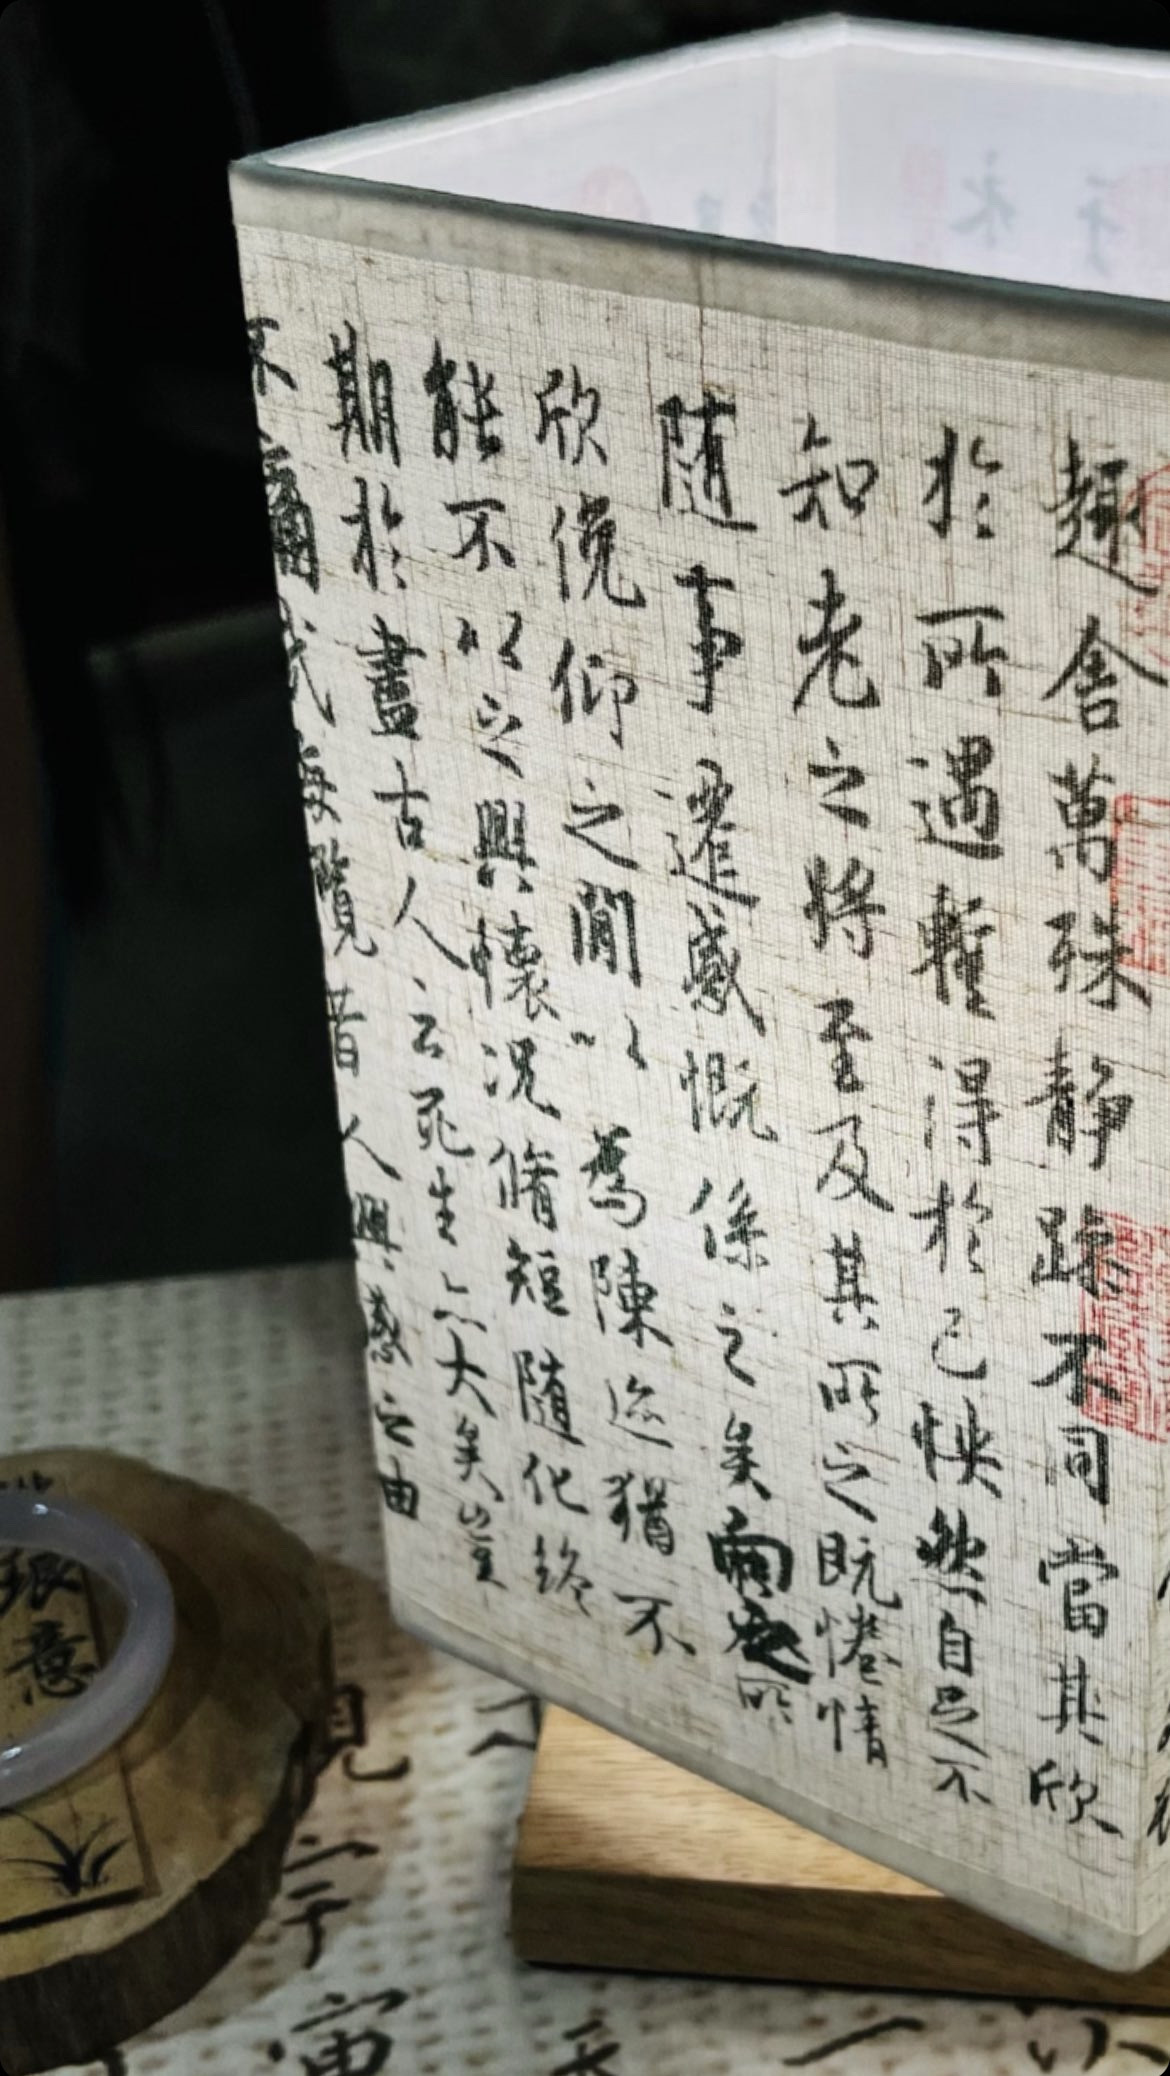 趣舍萬殊静躁不同當其欣
於所遇暫得於己怏然自足不
知老之將至及其所之既惓情
随事遷感慨係之矣向之所
欣俛仰之閒以爲陳迹猶不
能不以之興懷况脩短随化終
期於盡古人云死生亦大矣豈
不痛哉每覽昔人興感之由
意